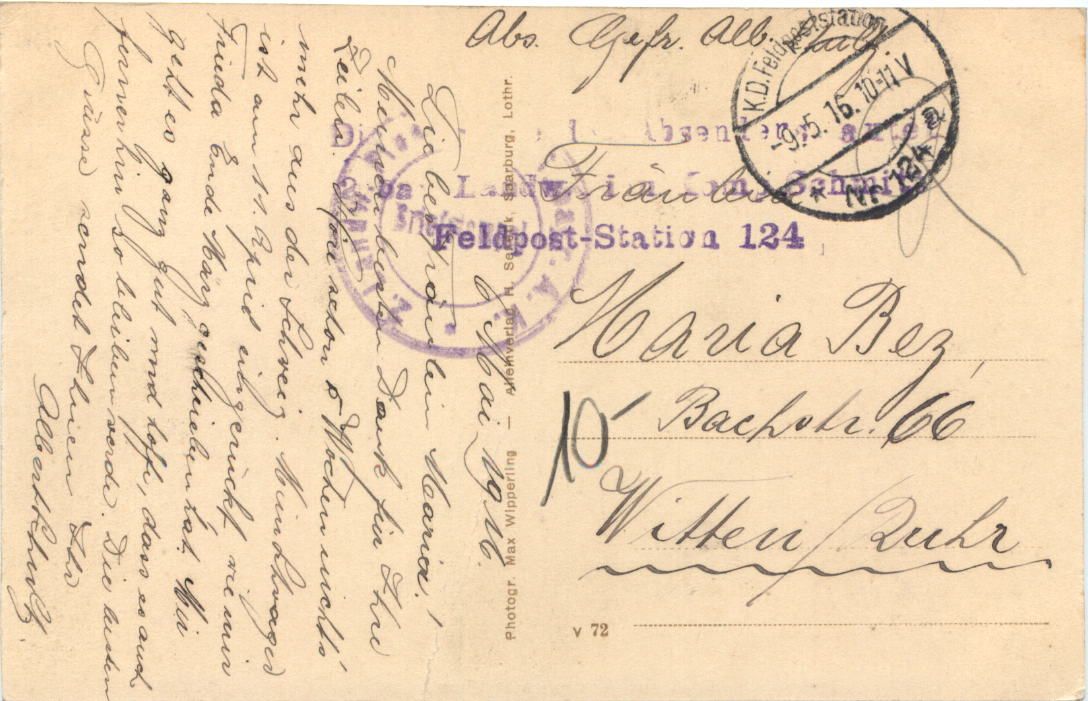 Abs. Gefr. Alb. Schulz.
K.D. Feldpoststation
-9.5.16.10-11V
* Nr 124 * a
Absenders
Landw.
Feldpost-Station 124
Fräulein
Maria Bez,
Bachstr. 66
Witten/Ruhr
10-
Photogr. Max Wipperling — Alleinverlag. H. Saarburg, Lothr.
V 72
6 Mai 1916.
Liebe Fräulein Maria!
Meinen besten Dank für Ihre
Zeilen. Höre schon 5 Wochen nichts
mehr aus der Schweiz. Mein Schwager
ist am 11. April eingerückt wie mir
Frieda Ende März geschrieben hat. Mir
geht es ganz gut und hoffe, dass es auch
fernerhin so bleiben werde. Die besten
Grüsse sendet Ihnen Ihr
Albert Schulz.